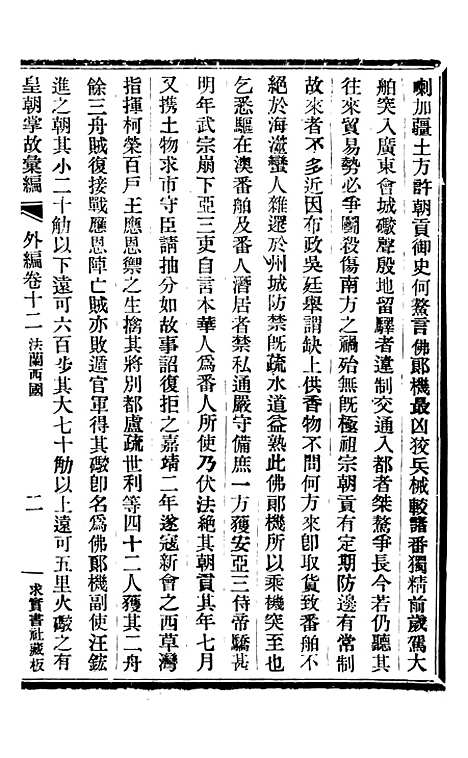 喇加疆土方許朝貢御史何鰲言佛郞機最凶狡兵械較諸番獨精前歲駕大
舶突入廣東會城礮聲殷地留驛者違制交通入都者桀驁爭長今若仍聽其
往來貿易勢必爭鬭殺傷南方之禍殆無旣極祖宗朝貢有定期防邊有常制
故來者不多近因布政吳廷舉謂缺上供香物不問何方來卽取貨致番舶不
絕於海澨蠻人雜遝於州城防禁旣疏水道益熟此佛郞機所以乘機突至也
乞悉驅在澳番舶及番人潛居者禁私通嚴守備庶一方獲安亞三侍帝驕甚
明年武宗崩下亞三吏自言本華人爲番人所使乃伏法絕其朝貢其年七月
又携土物求市守臣請抽分如故事詔復拒之嘉靖二年遂寇新會之西草灣
指揮柯榮百戶王應恩禦之生擒其將別都盧疏世利等四十二人獲其二舟
餘三舟賊復接戰應恩陣亡賊亦敗遁官軍得其礮卽名爲佛郞機副使汪鋐
進之朝其小二十觔以下遠可六百步其大七十觔以上遠可五里火礮之有
皇朝掌故彙編 外編卷十二 法蘭西國 二 求實書社藏板